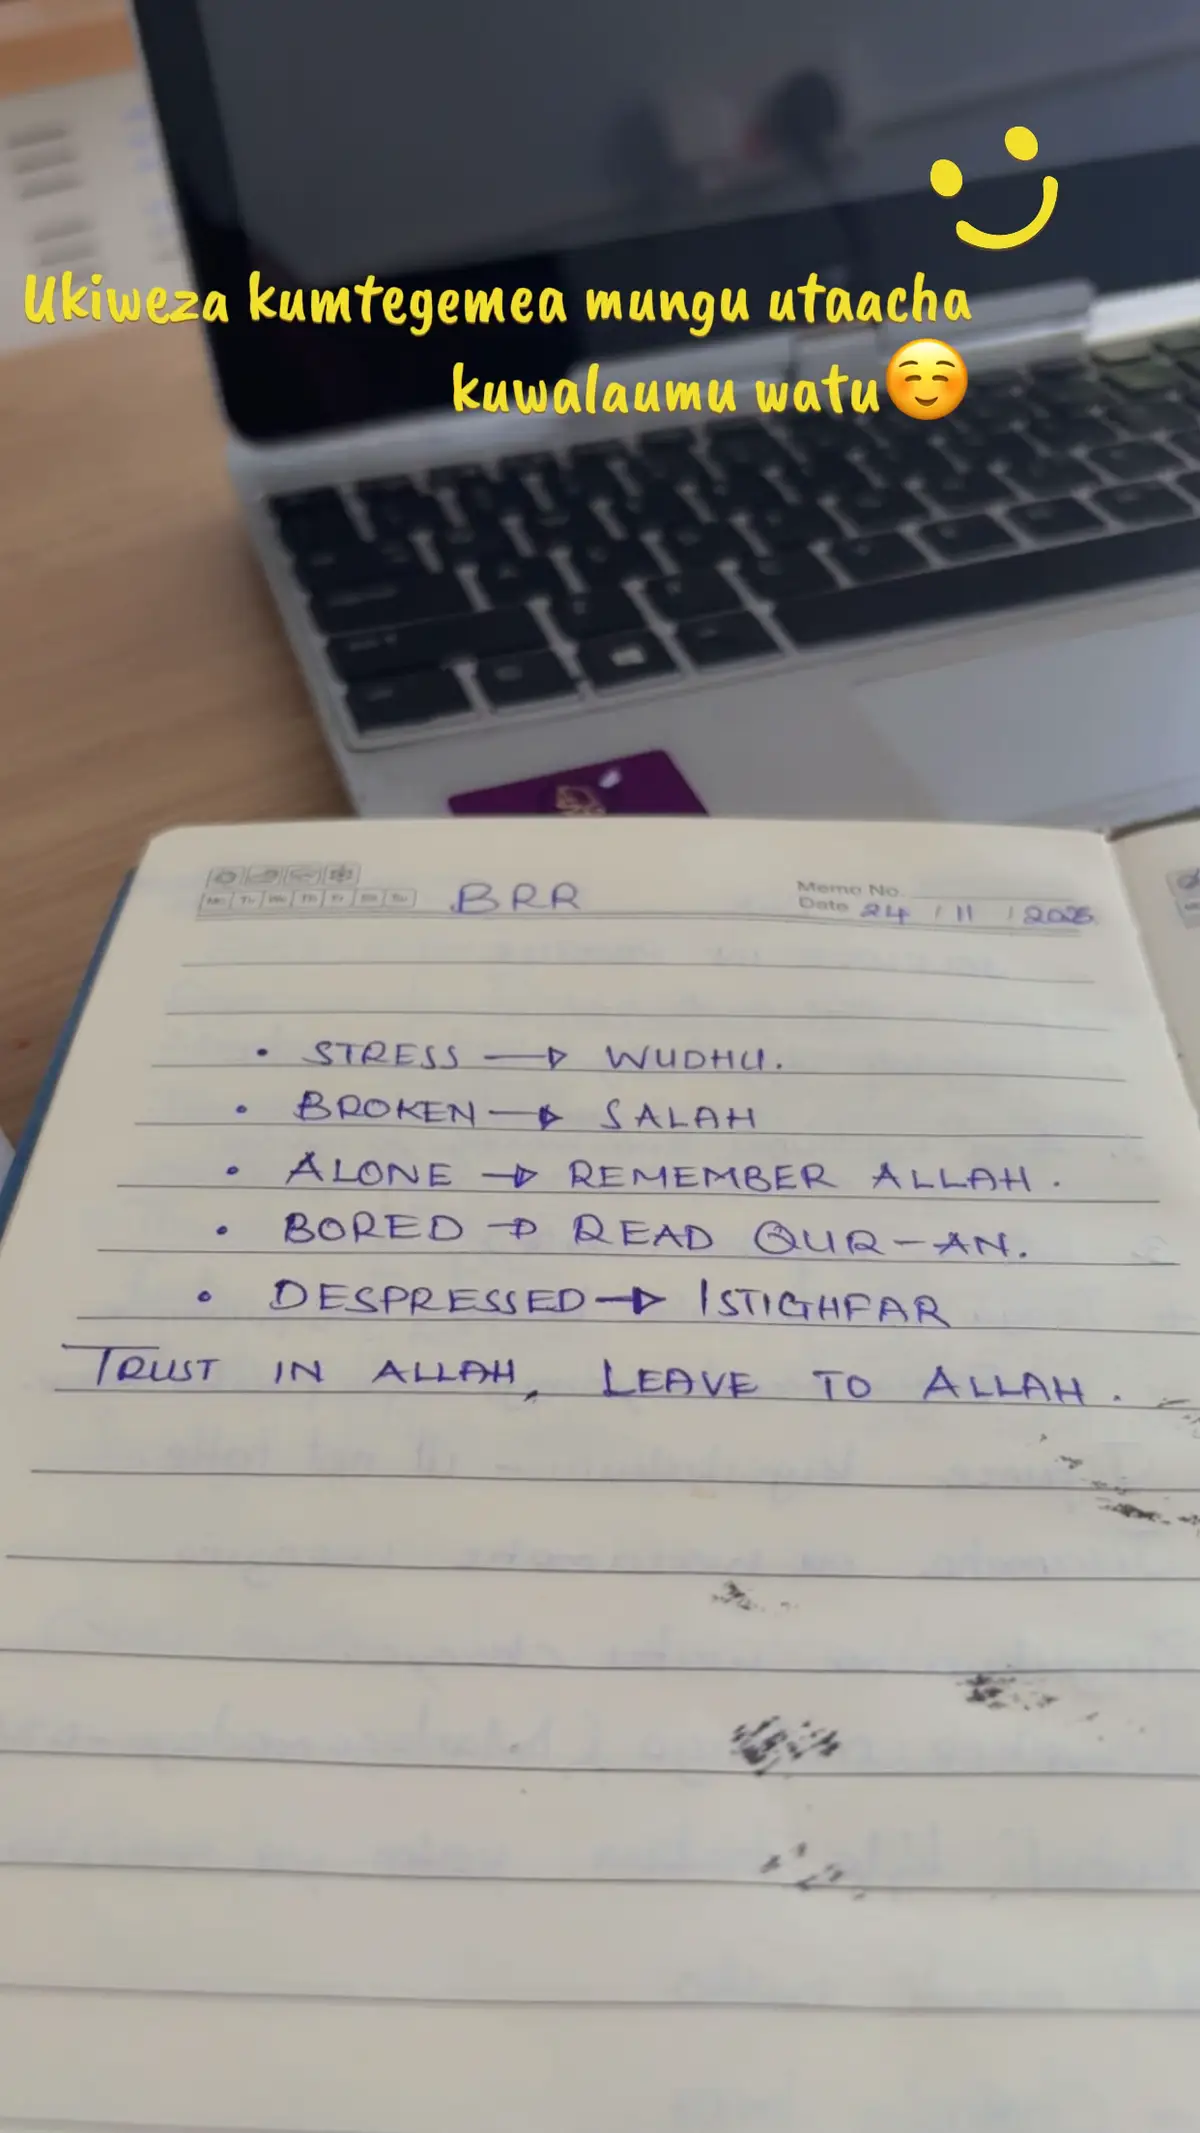 Ukiweza kumtegemea mungu utaacha
kuwalaumu watu☺️
BRR
Memo No.
Date 24 / 11 / 2025
• STRESS → WUDHU.
• BROKEN → SALAH
• ALONE → REMEMBER ALLAH.
• BORED → READ QUR-AN.
• DESPRESSED → ISTIGHFAR
TRUST IN ALLAH, LEAVE TO ALLAH.